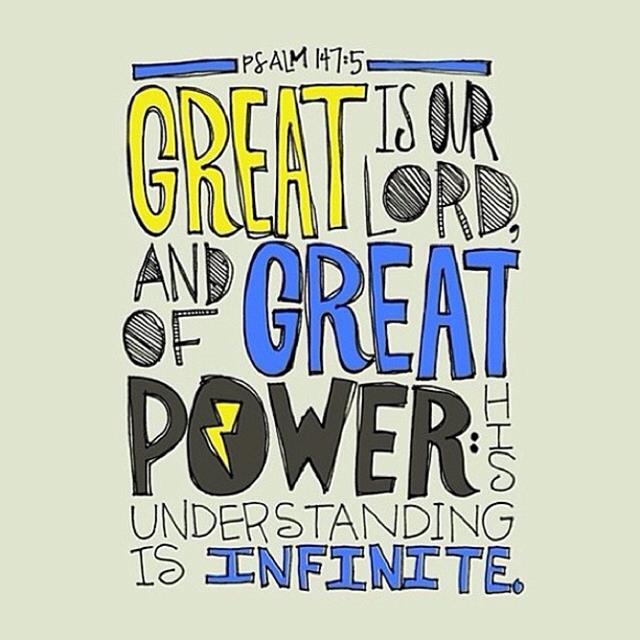 PSALM 147:5
GREAT IS OUR
LORD,
AND GREAT
OF
POWER: HIS
UNDERSTANDING
IS INFINITE.